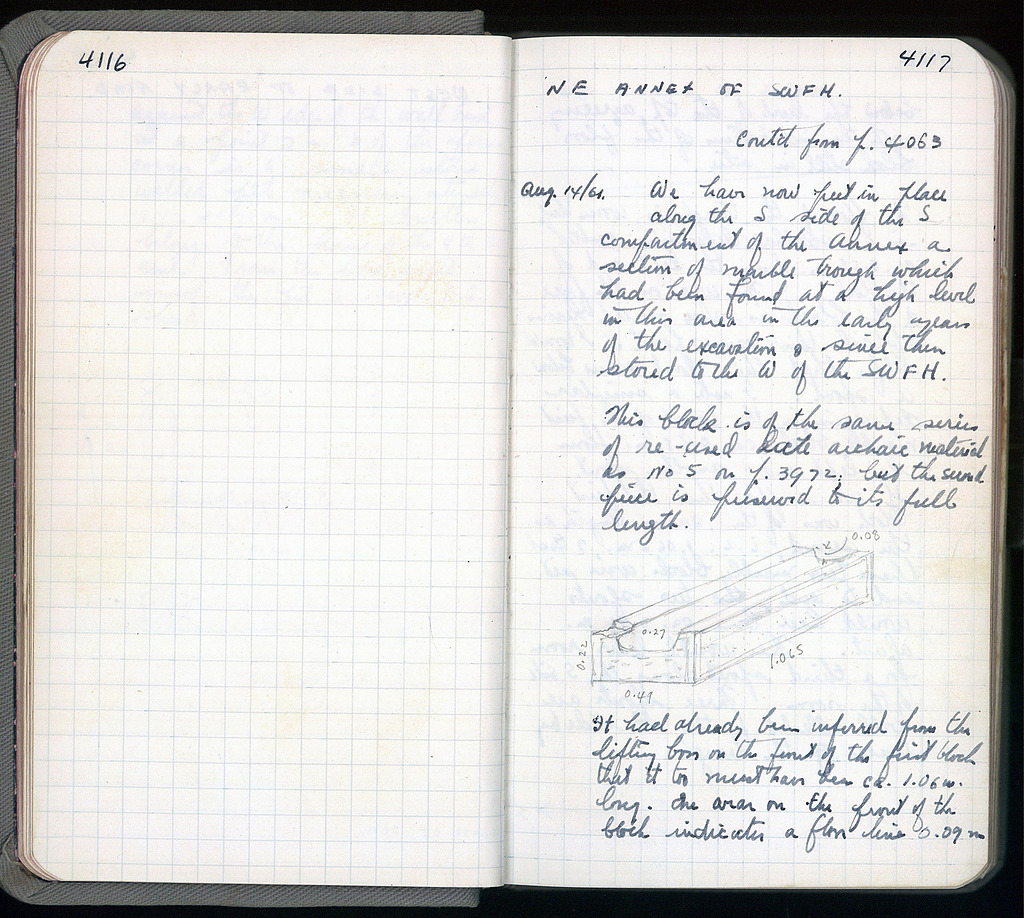 4116
4117
NE ANNEX OF SWFH.
Contd from p. 4063
Aug. 14/61. We have now put in place
along the S side of the S
compartment of the Annex a
section of marble trough which
had been found at a high level
in this area in the early years
of the excavation & since then
stored to the W of the SWFH.
This block is of the same series
of re-used late archaic material
as No 5 on p. 3972; but the second
piece is preserved to its full
length.
0.08
0.27
0.22
1.065
0.49
It had already been inferred from the
lifting boss on the front of the first block
that it too must have been ca. 1.06 m.
long. The wear on the front of the
block indicates a floor line 0.09 m